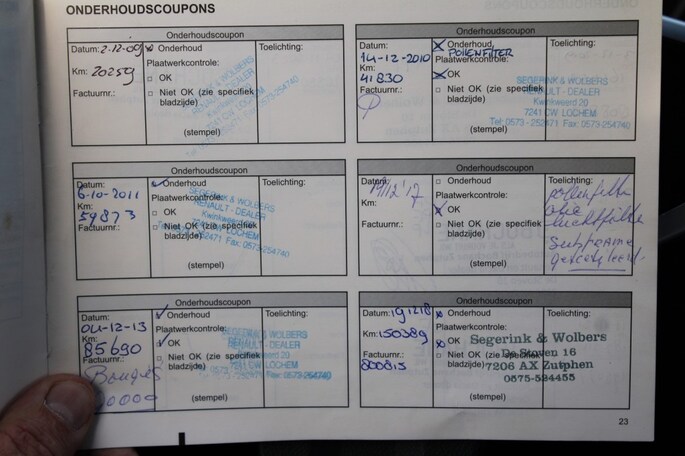 ONDERHOUDSCOUPONS
Onderhoudscoupon
Datum: 2-12-09
Km: 20259
Factuurnr.:
Onderhoud
Plaatwerkcontrole:
OK
Niet OK (zie specifiek
bladzijde)
(stempel)
Toelichting:
SEGERINK & WOLBERS
RENAULT - DEALER
7241 CW LOCHEM
Fax: 0573-254740
Onderhoudscoupon
Datum:
14-12-2010
Km:
41830
Factuurnr.:
Onderhoud, POLLENFILTER
Plaatwerkcontrole:
OK
Niet OK (zie specifiek
bladzijde)
(stempel)
Toelichting:
SEGERINK & WOLBERS
RENAULT - DEALER
Kwinkweerd 20
7241 CW LOCHEM
Tel: 0573-252471 Fax: 0573-254740
Onderhoudscoupon
Datum:
6-10-2011
Km:
59873
Factuurnr.:
Onderhoud
Plaatwerkcontrole:
OK
Niet OK (zie specifiek
bladzijde)
(stempel)
Toelichting:
SEGERINK & WOLBERS
RENAULT - DEALER
Kwinkweerd 20
7241 CW LOCHEM
Fax: 0573-254740
Onderhoudscoupon
Datum:
19/12 '17
Km:
Factuurnr.:
Onderhoud
Plaatwerkcontrole:
OK
Niet OK (zie specifiek
bladzijde)
(stempel)
Toelichting:
pollenfilter
olie
luchtfilter
Onderhoudscoupon
Datum:
04-12-13
Km:
85690
Factuurnr.:
Bougies
Onderhoud
Plaatwerkcontrole:
OK
Niet OK (zie specifiek
bladzijde)
(stempel)
Toelichting:
SEGERINK & WOLBERS
RENAULT - DEALER
7241 CW LOCHEM
0573-254740
Onderhoudscoupon
Datum: 191218
Km: 150389
Factuurnr.:
800815
Onderhoud
Plaatwerkcontrole:
OK
Niet OK (zie specifiek
bladzijde)
(stempel)
Toelichting:
Segerink & Wolbers
De Stoven 16
7206 AX Zutphen
0575-524455
23